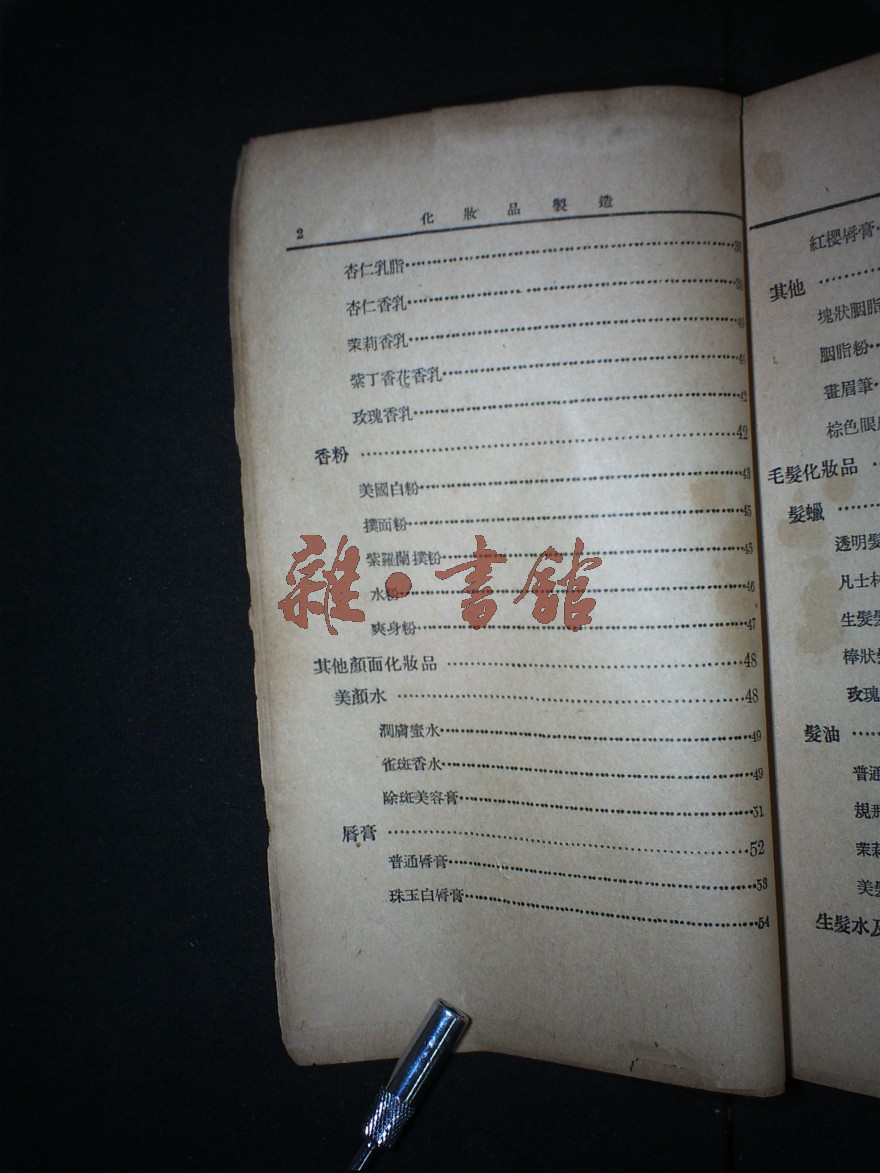 2 化妝品製造
杏仁乳脂
杏仁香乳
茉莉香乳
紫丁香花香乳
玫瑰香乳 42
香粉 42
美國白粉 43
撲面粉 45
紫羅蘭撲粉 45
水粉 46
爽身粉 47
其他顏面化妝品 48
美顏水 48
潤膚蜜水 49
雀斑香水 49
除斑美容膏 51
唇膏 52
普通唇膏 53
珠玉白唇膏 54
紅櫻唇膏
其他
塊狀胭脂
胭脂粉
畫眉筆
棕色眼
毛髮化妝品
髮蠟
透明髮
凡士林
生髮
棒狀
玫瑰
髮油
普通
規那
茉莉
美髮
生髮水及
雜·書館